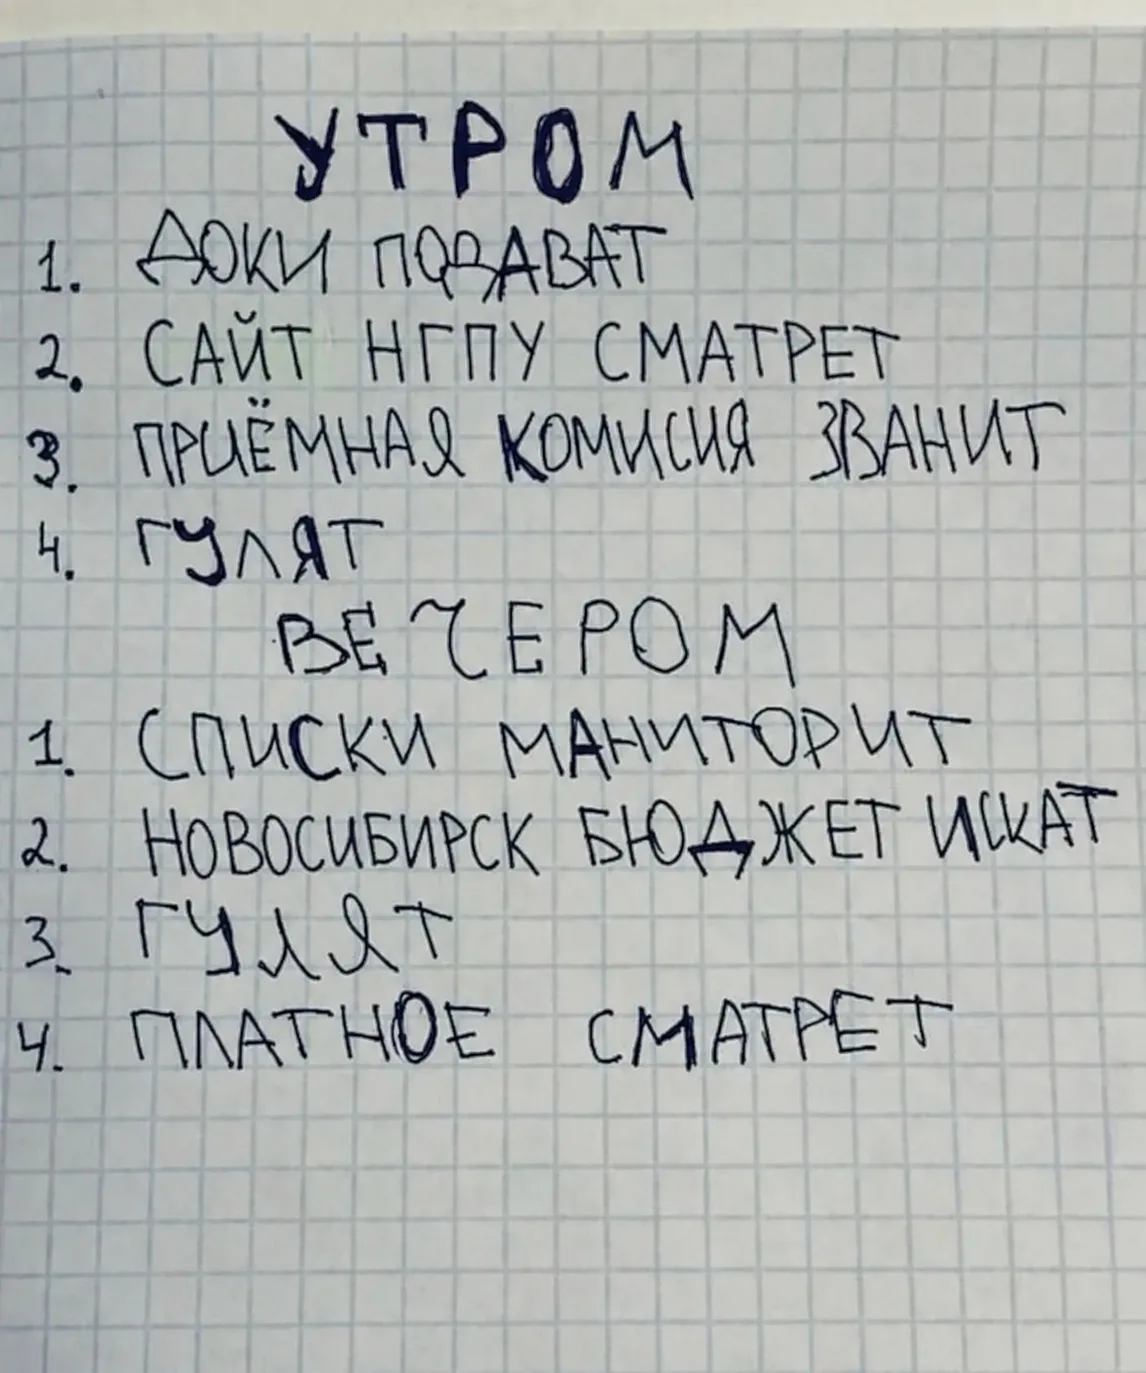 УТРОМ
1. ДОКИ ПОДАВАТ
2. САЙТ НГПУ СМАТРЕТ
3. ПРИЁМНАЯ КОМИСИЯ ЗВАНИТ
4. ГУЛЯТ
ВЕЧЕРОМ
1. СПИСКИ МАНИТОРИТ
2. НОВОСИБИРСК БЮДЖЕТ ИСКАТ
3. ГУЛЯТ
4. ПЛАТНОЕ СМАТРЕТ